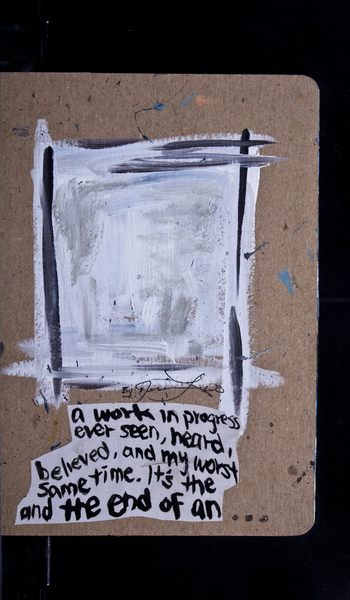 By:
a work in progress
ever seen, heard,
believed, and my worst
same time. It's the
and the end of an